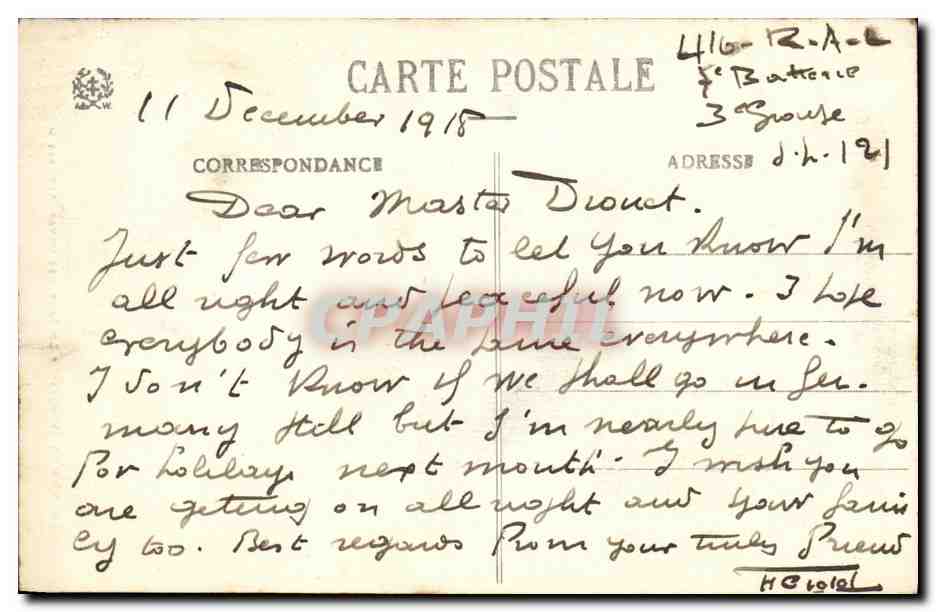 416 - R - A - L
CARTE POSTALE
5e Batterie
11 December 1918
3e Groupe
CORRESPONDANCE
ADRESSE
S.P. 121
Dear Master Drouet.
Just few words to let you know I'm
all right and peaceful now. I hope
everybody is the same everywhere.
I don't know if we shall go in Ger-
many still but I'm nearly sure to go
for holidays next month. I wish you
are geting on all right and your fami
ly too. Best regards from your truly friend
CPAPHIL